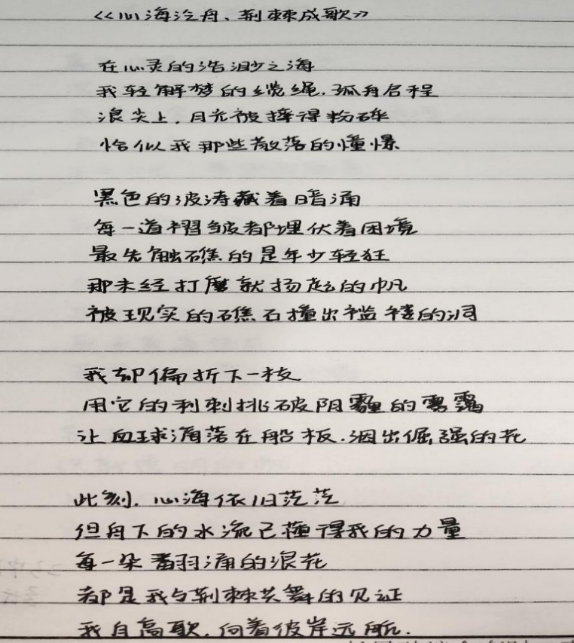 《心海泛舟、荆棘成歌》
在心灵的浩渺之海
我轻解梦的缆绳.孤舟启程
浪尖上.月光被摔得粉碎
恰似我那些散落的憧憬
黑色的波涛藏着暗涌
每一道褶皱都埋伏着困境
最先触礁的是年少轻狂
那未经打磨就扬起的帆
被现实的礁石撞出褴褛的洞
我却偏折下一枝
用它的利刺挑破阴霾的雾霭
让血珠滴落在船板.洇出倔强的花
此刻.心海依旧茫茫
但舟下的水流已懂得我的力量
每一朵翻涌的浪花
都是我与荆棘共舞的见证
我自高歌.向着彼岸远航.